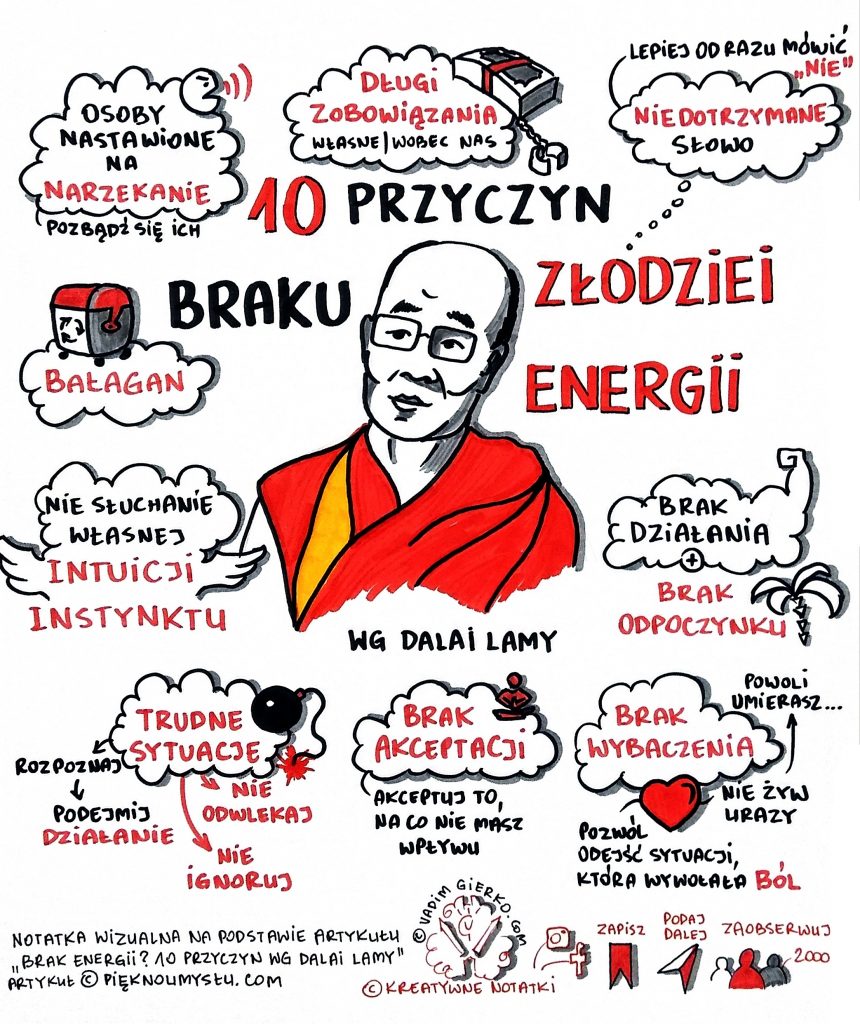 OSOBY
NASTAWIONE
NA
NARZEKANIE
POZBĄDŹ SIĘ ICH
DŁUGI
ZOBOWIĄZANIA
WŁASNE | WOBEC NAS
LEPIEJ OD RAZU MÓWIĆ
„NIE"
NIEDOTRZYMANE
SŁOWO
10 PRZYCZYN
BRAKU
ZŁODZIEI
ENERGII
BAŁAGAN
NIE SŁUCHANIE
WŁASNEJ
INTUICJI
INSTYNKTU
BRAK
DZIAŁANIA
+
BRAK
ODPOCZYNKU
WG DALAI LAMY
TRUDNE
SYTUACJE
ROZPOZNAJ
PODEJMIJ
DZIAŁANIE
NIE
ODWLEKAJ
NIE
IGNORUJ
BRAK
AKCEPTACJI
AKCEPTUJ TO,
NA CO NIE MASZ
WPŁYWU
BRAK
WYBACZENIA
POWOLI
UMIERASZ...
NIE ŻYW
URAZY
POZWÓL
ODEJŚĆ SYTUACJI,
KTÓRA WYWOŁAŁA BÓL
NOTATKA WIZUALNA NA PODSTAWIE ARTYKUŁU
„BRAK ENERGII? 10 PRZYCZYN WG DALAI LAMY"
ARTYKUŁ © PIĘKNOUMYSŁU.COM
© VADIM GIERKO.COM
© KREATYWNE NOTATKI
ZAPISZ
PODAJ
DALEJ
ZAOBSERWUJ
2000